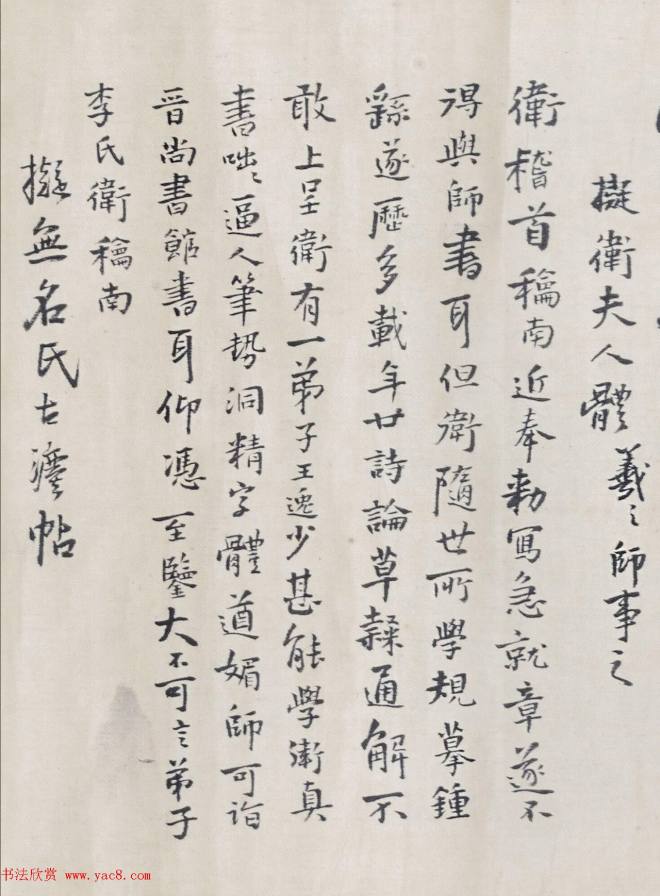 擬衛夫人體 羲之師事之
衛稽首龢南近奉勅寫急就章遂不
得與師書耳但衛隨世所學規摹鍾
繇遂歷多載年廿詩論草隸通解不
敢上呈衛有一弟子王逸少甚能學衛真
書咄〻逼人筆勢洞精字體遒媚師可詣
晉尚書館書耳仰憑至鑒大不可言弟子
李氏衛龢南
擬無名氏古帖
书法欣赏 www.yac8.com